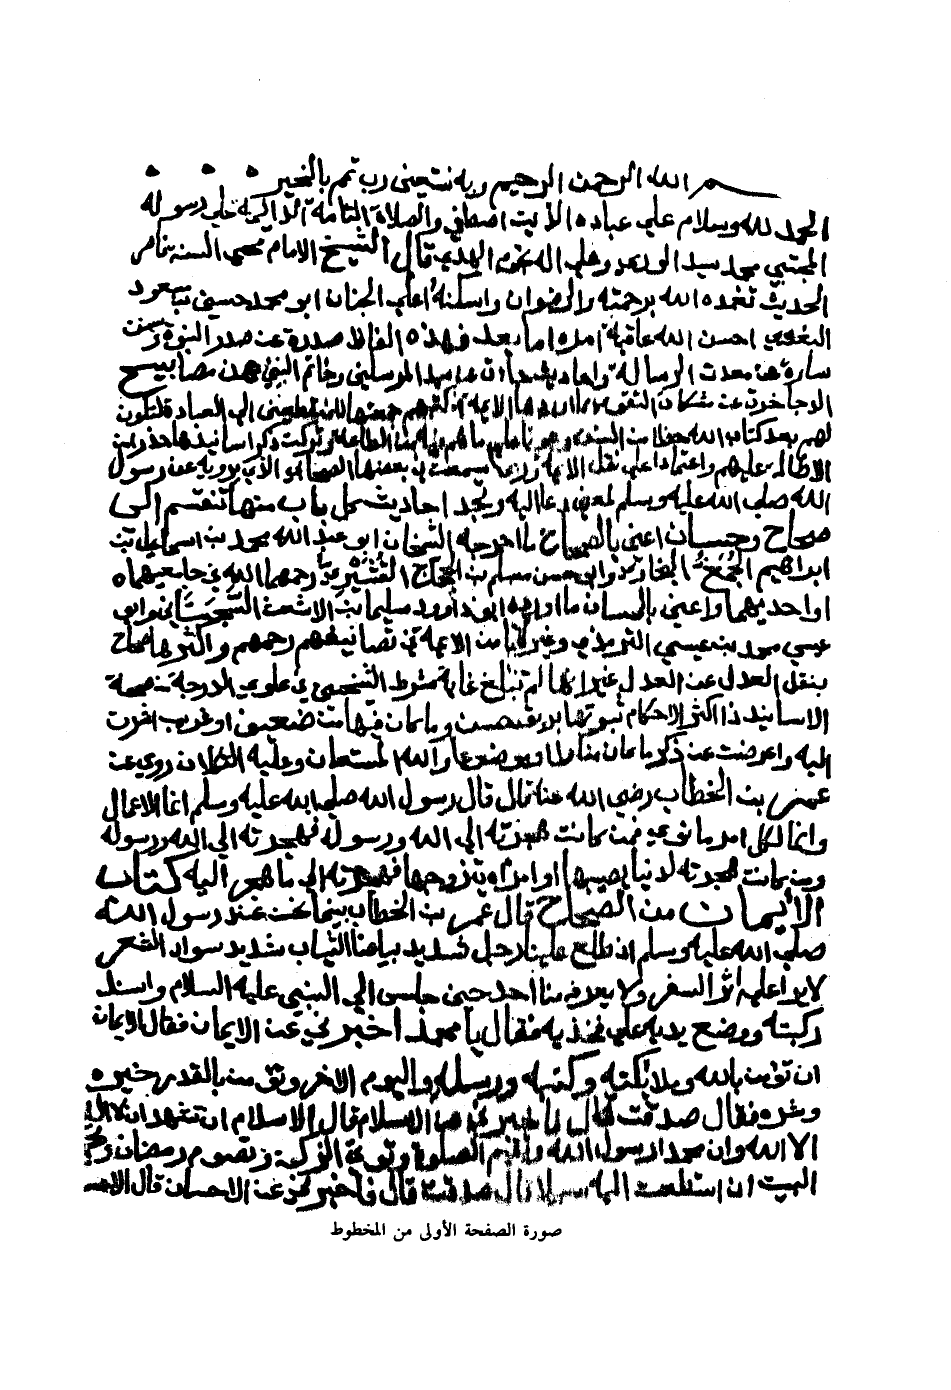 بسم الله الرحمن الرحيم وبه نستعين رب تمم بالخير
الحمد لله وسلام علي عباده الذين اصطفي والصلاة التامة الزاكية علي رسوله
المجتبي محمد سيد الوري وعلي اله نجوم الهدي قال الشيخ الامام محيي السنة ناصر
الحديث تغمده الله برحمته والرضوان واسكنه اعلي الجنان ابو محمد حسين بن مسعود
البغوي احسن الله عاقبة امره اما بعد فهذه الفاظ صدرة عن صدر النبوة وسنن
سارة عن معدن الرسالة واحاديث جاءت عن سيد المرسلين وخاتم النبين هن مصابيح
الدجا خرجت عن مشكاة التقوي مما اوردها الائمة في كتبهم جمعتها للمنقطعين الي العبادة لتكون
لهم بعد كتاب الله حظا من السنن وعونا علي ما هم فيه من الطاعة وتركت ذكر اسانيدها حذرا من
الاطالة عليهم واعتمادا علي نقل الائمة وربما سميت في بعضها الصحابي الذي يرويه عن رسول
الله صلي الله عليه وسلم لمعني دعا اليه وتجد احاديث كل باب منها تنقسم الي
صحاح وحسان اعني بالصحاح ما اخرجه الشيخان ابو عبد الله محمد بن اسماعيل بن
ابراهيم الجعفي البخاري وابو الحسن مسلم بن الحجاج القشيري رحمهما الله في جامعيهما
او احديهما واعني بالحسان ما اورده ابو داود سليمان بن الاشعث السجستاني وابو
عيسي محمد بن عيسي الترمذي وغيرهما من الائمة في تصانيفهم رحمهم واكثرها صحاح
بنقل العدل عن العدل غير انها لم تبلغ غاية شرط الشيخين في علوي الدرجة من صحة
الاسانيد اذ اكثر الاحكام ثبوتها بطريق حسن وما كان فيها من ضعيف او غريب اشرت
اليه واعرضت عن ذكر ما كان منكرا او موضوعا والله المستعان وعليه التكلان روي عن
عمر بن الخطاب رضي الله عنه قال قال رسول الله صلي الله عليه وسلم انما الاعمال
وانما لكل امرء ما نوي فمن كانت هجرته الي الله ورسوله فهجرته الي الله ورسوله
ومن كانت هجرته لدنيا يصيبها او امراة يتزوجها فهجرته الي ما هجر اليه كتاب
الايمان من الصحاح قال عمر بن الخطاب بينما نحن عند رسول الله
صلي الله عليه وسلم اذ طلع علينا رجل شديد بياض الثياب شديد سواد الشعر
لا يرا عليه اثر السفر ولا يعرفه منا احد حتي جلس الي النبي عليه السلام واسند
ركبته ووضع يديه علي فخذيه فقال يا محمد اخبرني عن الايمان فقال الايمان
ان تؤمن بالله وملائكته وكتبه ورسله واليوم الاخر وتؤمن بالقدر خيره
وشره فقال صدقت قال فاخبرني عن الاسلام قال الاسلام ان تشهد ان لا اله
الا الله وان محمدا رسول الله وتقيم الصلوة وتوتي الزكوة وتصوم رمضان وتحج
البيت ان استطعت اليه سبيلا قال صدقت قال فاخبرني عن الاحسان قال الاحسا
صورة الصفحة الأولى من المخطوط